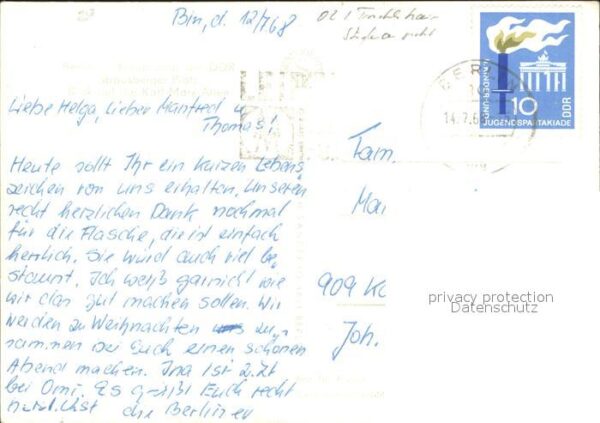 Bln, d. 12/7 68
Liebe Helga, lieber Manfred u.
Thomas!
Heute sollt Ihr ein kurzes Lebens
zeichen von uns erhalten. Unseren
recht herzlichen Dank nochmal
für die Flasche, die ist einfach
herrlich. Sie wird auch viel be
staunt. Ich weiß garnicht wie
wir das gut machen sollen. Wir
werden zu Weihnachten zu
sammen bei Euch einen schönen
Abend machen. Ina ist z.Zt
bei Omi. Es grüßt Euch recht
herzl. die Berliner
Fam.
Mai
909 Kl
Joh.
BERLIN
14.7.6
I. KINDER-UND
JUGENDSPARTAKIADE
10
DDR
privacy protection
Datenschutz